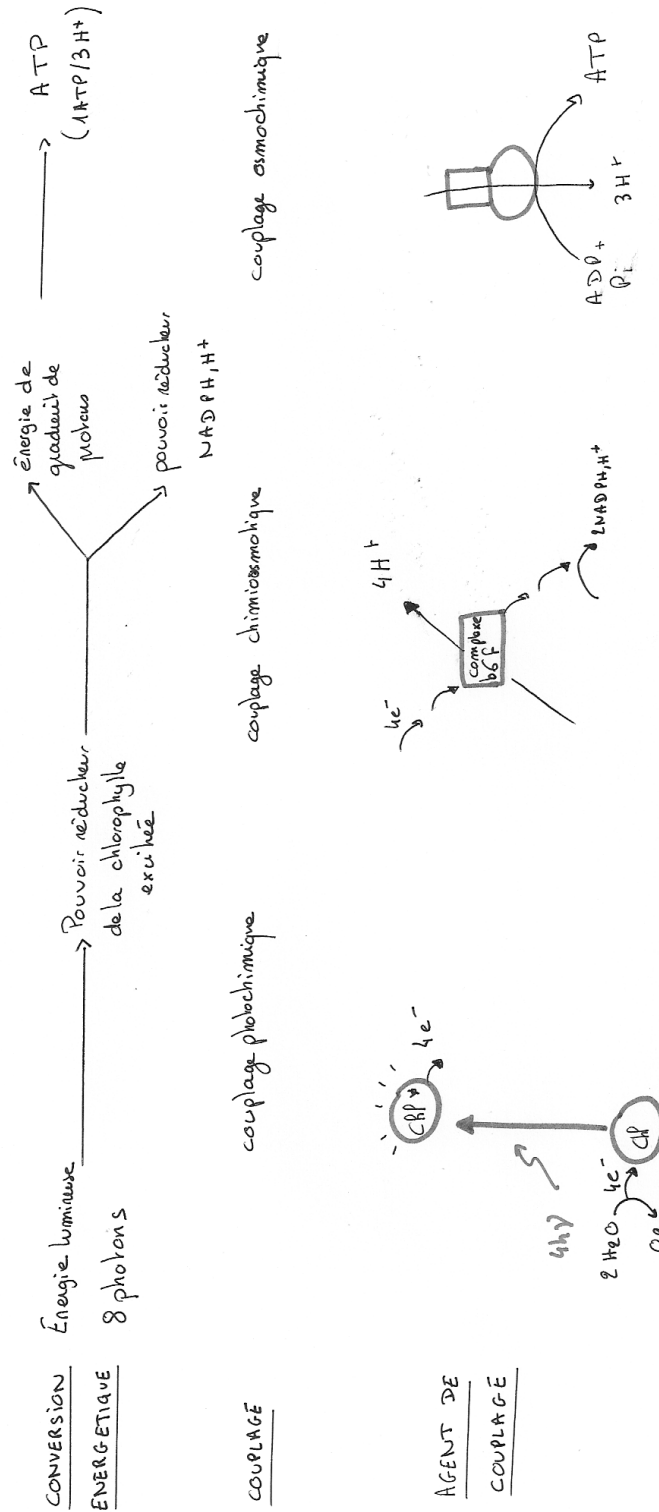 CONVERSION
ENERGETIQUE
Énergie lumineuse
8 photons
Pouvoir réducteur
de la chlorophylle
excitée
énergie de
gradient de
protons
pouvoir réducteur
NADPH,H+
ATP
(1ATP/3H+)
COUPLAGE
couplage photochimique
couplage chimioosmotique
couplage osmochimique
AGENT DE
COUPLAGE
Chl*
4e-
4hν
2 H2O
4e-
Chl
4e-
complexe
b6f
4H+
2NADPH,H+
ADP+
Pi
3H+
ATP